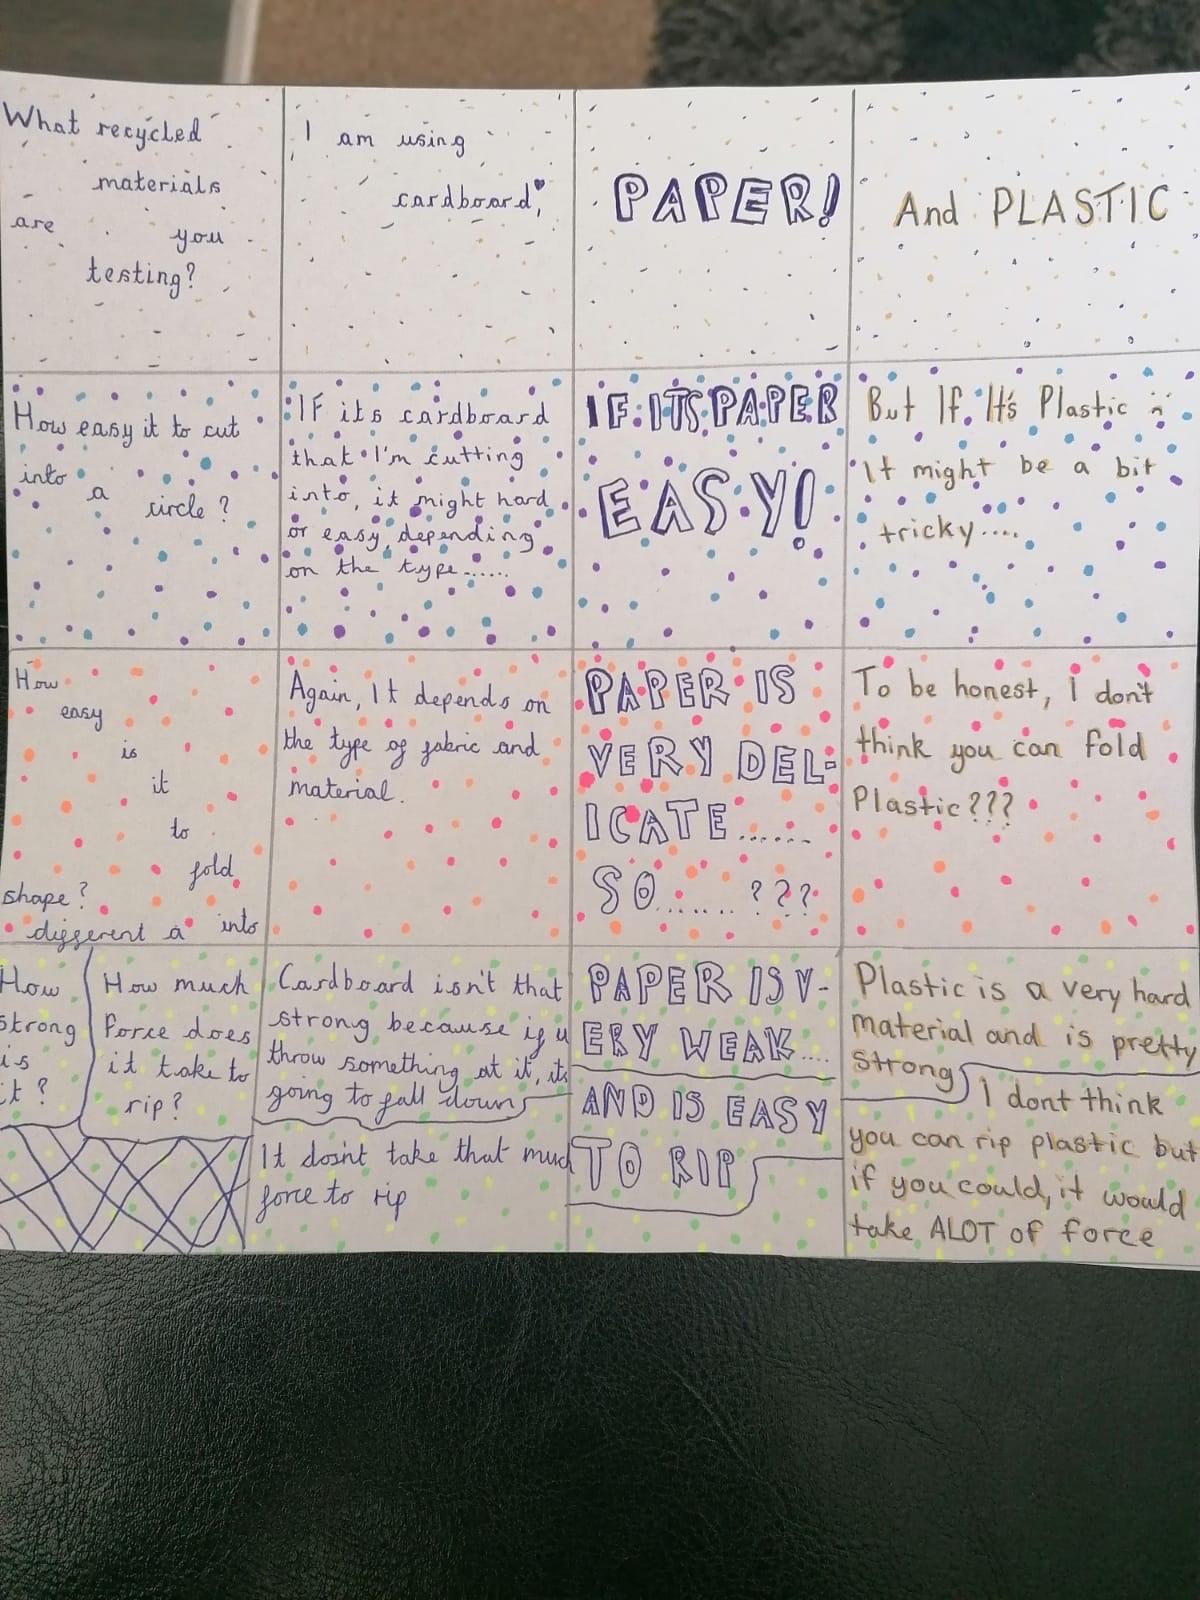 What recycled
materials
are you
testing?
I am using
cardboard,
PAPER!
And PLASTIC
How easy it to cut
into a
circle?
IF its cardboard
that I'm cutting
into, it might hard
or easy, depending
on the type......
IF ITS PAPER
EASY!
But If It's Plastic
It might be a bit
tricky....
How
easy
is
it
to
fold
shape?
different a into
Again, It depends on
the type of fabric and
material.
PAPER IS
VERY DEL-
ICATE......
SO....... ???
To be honest, I don't
think you can fold
Plastic???
How
strong
is
it?
How much
force does
it take to
rip?
Cardboard isn't that
strong because if u
throw something at it, its
going to fall down
It dosn't take that much
force to rip
PAPER IS V-
ERY WEAK....
AND IS EASY
TO RIP
Plastic is a very hard
material and is pretty
strong
I dont think
you can rip plastic but
if you could, it would
take ALOT of force